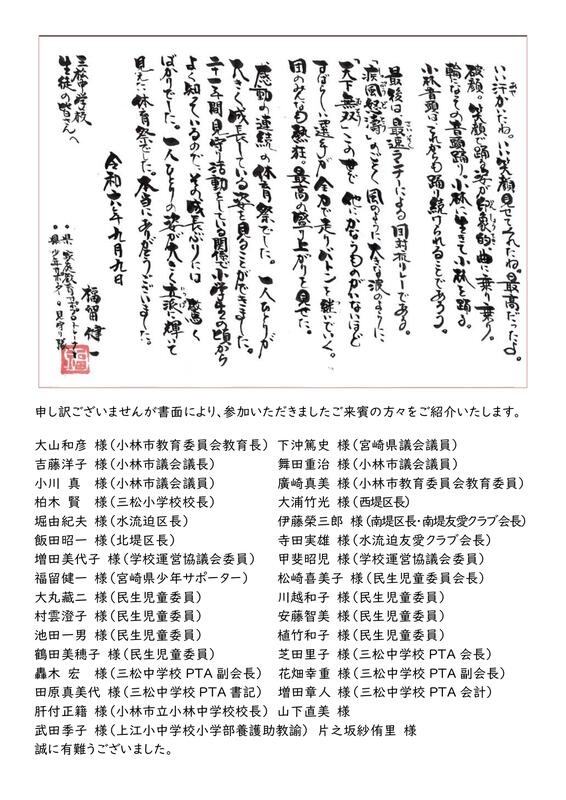 いい汗かいたね。いい笑顔見せてくれたね。最高だったよ。
破顔。笑顔で踊る姿が印象的曲に乗り乗り。
輪になその音頭踊り。小林に生きて小林を踊る。
小林音頭はこれからも踊り続けられることであろう。
最後は最速ランナーによる団対抗リレーである。
「疾風怒濤」のごとく風のように大きな波のように
「天下無双」この世で他にかなうものがいないほど
すばらしい選手が全力で走りバトンを継いでいく。
団のみんなも熱狂。最高の盛り上がりを見せた。
感動の連続の体育祭でした。一人ひとりが
大きく成長している姿を見ることができました。
二十一年間見守り活動をしている関係で小学生の頃から
よく知っているのでその成長ぶりには驚く
ばかりでした。一人ひとりの姿が大きく立派に輝いて
見えた体育祭でした。本当にありがとうございました。
令和六年九月九日
福留健一
・県家庭教育サポートトレーナー
・県少年サポーター・見守り隊
三松中学校
生徒の皆さんへ
申し訳ございませんが書面により、参加いただきましたご来賓の方々をご紹介いたします。
大山和彦 様（小林市教育委員会教育長） 下沖篤史 様（宮崎県議会議員）
吉藤洋子 様（小林市議会議長） 舞田重治 様（小林市議会議員）
小川 真 様（小林市議会議員） 廣崎真美 様（小林市教育委員会教育委員）
柏木 賢 様（三松小学校校長） 大浦竹光 様（西堤区長）
堀由紀夫 様（水流迫区長） 伊藤榮三郎 様（南堤区長・南堤友愛クラブ会長）
飯田昭一 様（北堤区長） 寺田実雄 様（水流迫友愛クラブ会長）
増田美代子 様（学校運営協議会委員） 甲斐昭児 様（学校運営協議会委員）
福留健一 様（宮崎県少年サポーター） 松崎喜美子 様（民生児童委員会長）
大丸藏二 様（民生児童委員） 川越和子 様（民生児童委員）
村雲澄子 様（民生児童委員） 安藤智美 様（民生児童委員）
池田一男 様（民生児童委員） 植竹和子 様（民生児童委員）
鶴田美穂子 様（民生児童委員） 芝田里子 様（三松中学校 PTA 会長）
轟木 宏 様（三松中学校 PTA 副会長） 花畑幸重 様（三松中学校 PTA 副会長）
田原真美代 様（三松中学校 PTA 書記） 増田章人 様（三松中学校 PTA 会計）
肝付正籍 様（小林市立小林中学校校長） 山下直美 様
武田季子 様（上江小中学校小学部養護助教諭） 片之坂紗侑里 様
誠に有難うございました。